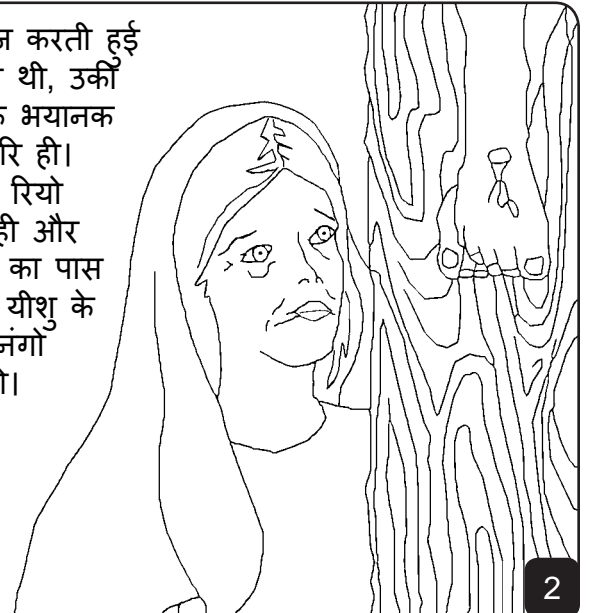 करती हुई
थी, उकी
भयानक
रि ही।
रियो
ही और
का पास
यीशु के
नंगो
2